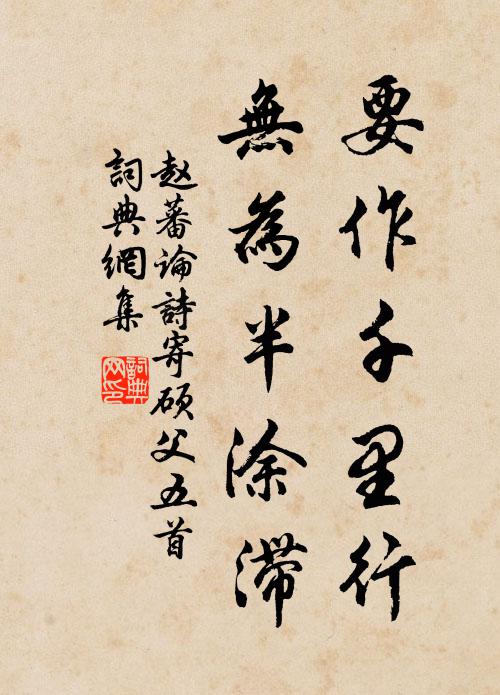 要作千里行
無為半涂滞
赵蕃论詩寄硕父五首
詞典網集
詞典网印